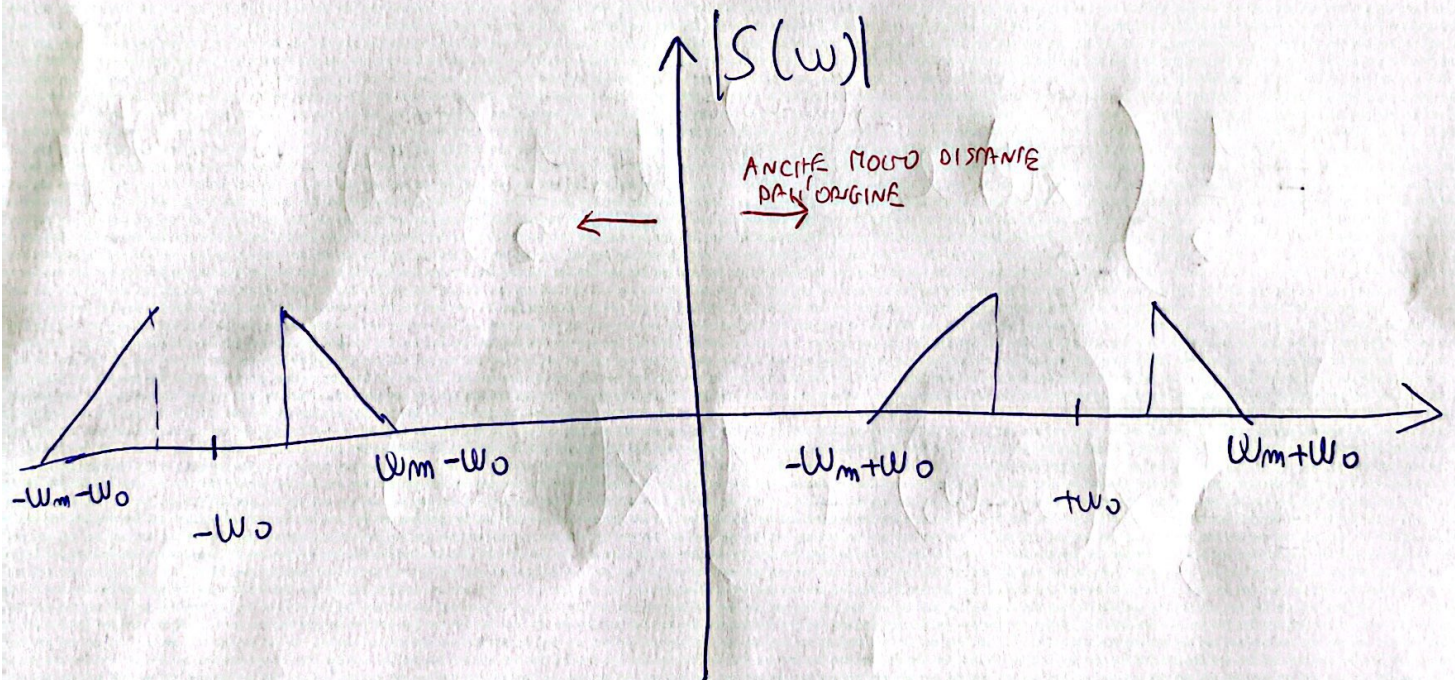 |S(ω)|
ANCHE MOLTO DISTANTE
DALL'ORIGINE
-ωm-ω0
-ω0
ωm-ω0
-ωm+ω0
+ω0
ωm+ω0